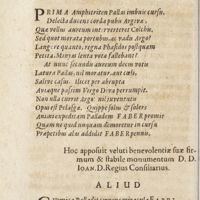 PRIMA Amphitriten Pallas imbuit cursu,
Delecta ducens corda pubis Argivæ.
Quæ vellus aureum inverteret Colchis,
Sed quot morata portubus, ac vadis Argo?
Langere quanto, regna Phasidos postquam
Petita, Minyas lenta vota fallebant?
At nunc secundis aureum decem votis
Latura Pallas, nil moratur, ant cæli,
Saliveclusi, fler est abrupta
Aviaque possem Virgo Diva perrumpit.
Non illa currit Argo: nil juventutis
Opus est Pelasgæ. Quippe solus & solers
Animis expeditam Palladem FABER pennis
Quam ne quid unquam demoretur in cursu
Præpetibus alas addidit FABER pennis,
Hoc apposuit veluti benevolentiæ suæ fir-
mum & stabile monumentum D. D.
IOAN. D. Regius Consiliarius.
ALIUD